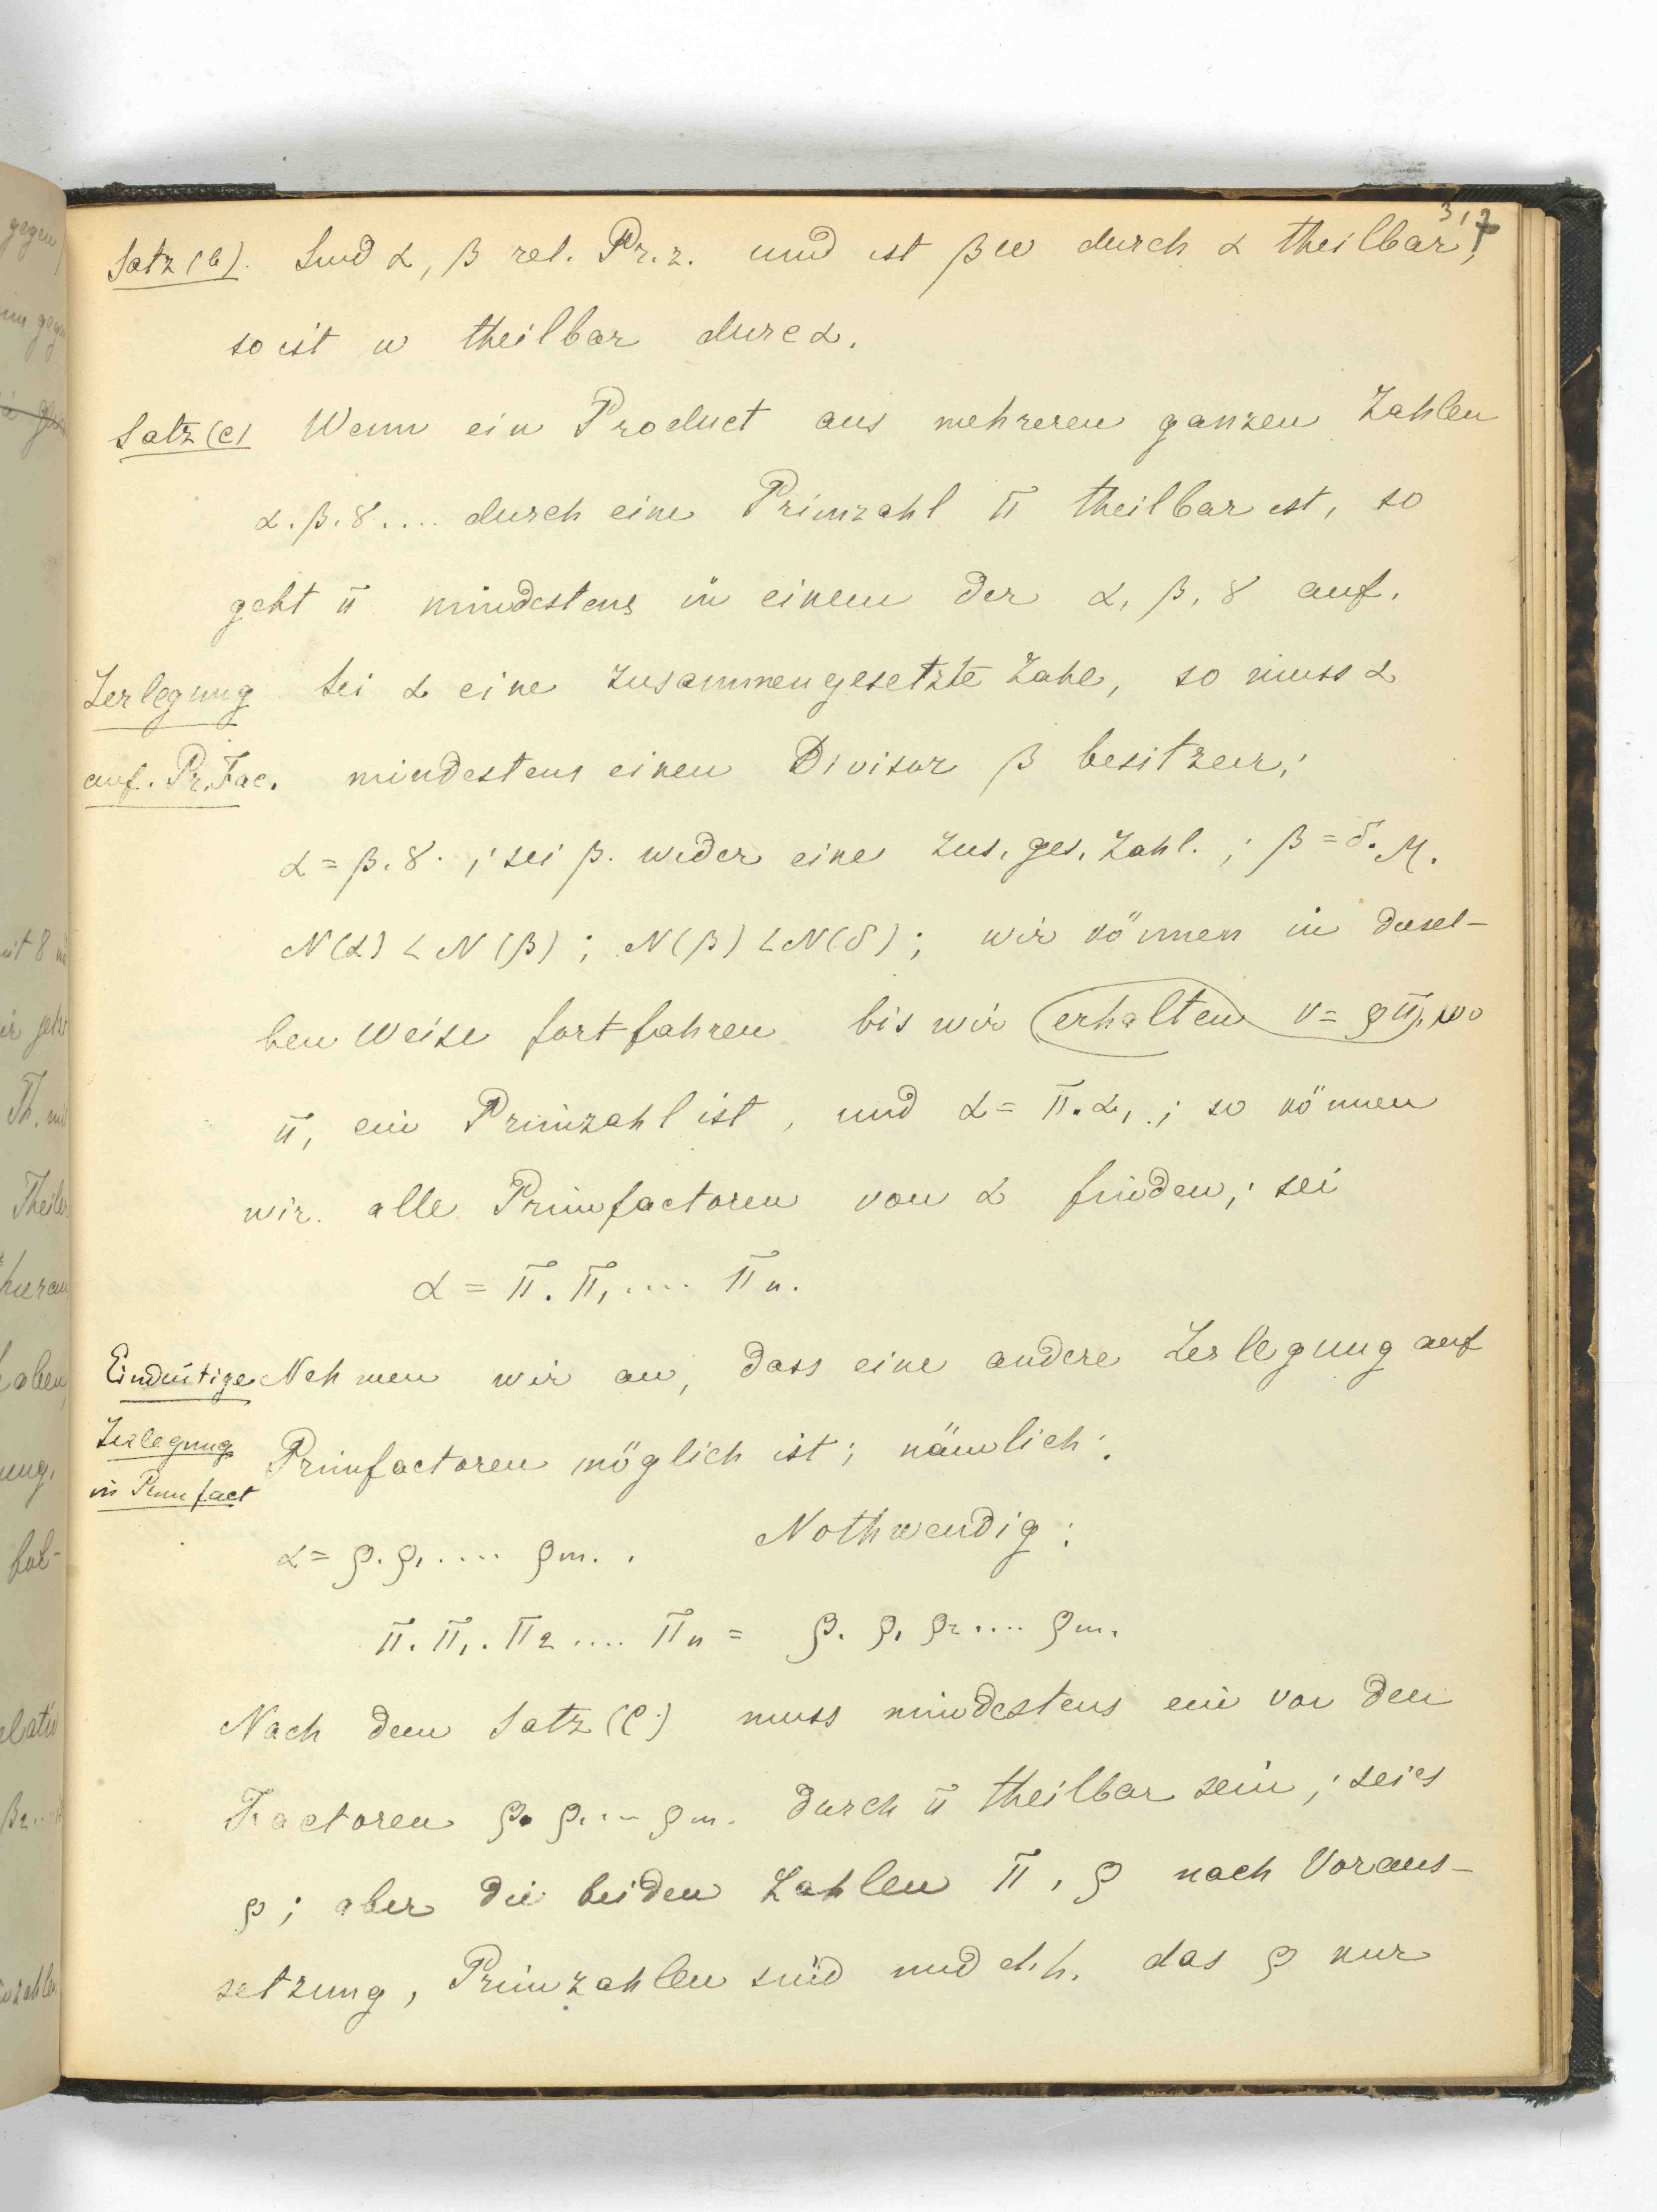 317
Satz (b). Sind α, β rel. Pr. z. und ist βω durch α theilbar,
so ist ω theilbar durc α.
Satz (c) Wenn ein Product aus mehreren ganzen Zahlen
α. β. γ .... durch eine Primzahl π theilbar ist, so
geht π mindestens in einem der α, β, γ auf.
Zerlegung Sei α eine zusammengesetzte Zahl, so muss α
auf. Pr. Fac. mindestens einen Divisor β besitzen;
α = β. γ. ; sei β. wider eine zus. ges. Zahl. ; β = δ. μ.
N(α) < N(β) ; N(β) < N(δ) ; wir können in desel-
ben Weise fortfahren bis wir erhalten ν = ρπ, wo
π, ein Primzahl ist, und α = π. α, ; so können
wir alle Primfactoren von α finden; sei
α = π. π, .... πn.
Eindeutige Nehmen wir an, dass eine andere Zerlegung auf
Zerlegung Primfactoren möglich ist; nämlich:
in Prim fact
α = ρ. ρ, .... ρm. . Nothwendig :
π. π,. π2 .... πn = ρ. ρ, ρ2 .... ρm.
Nach dem Satz (c) muss mindestens ein von den
Factoren ρ. ρ, ... ρm. durch π theilbar sein; sei es
ρ; aber die beiden Zahlen π, ρ nach Voraus-
setzung, Primzahlen sind und d. h. das ρ nur
gegen